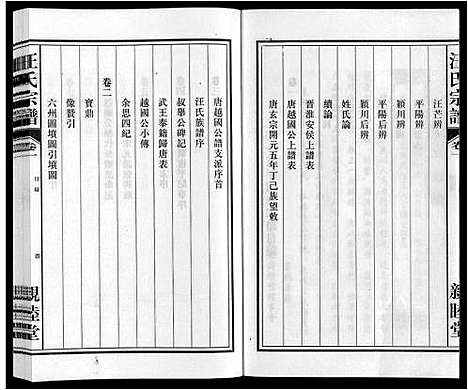 汪氏宗譜
卷一
親睦堂
汪芒辨
平陽辨
潁川辨
平陽后辨
潁川后辨
姓氏論
續論
晋淮安侯上譜表
唐越國公上譜表
唐玄宗開元五年丁已族望敕
唐越國公譜支派序首
汪氏族譜序
叔舉公碑記
武王奉籍歸唐表
越國公小傳
余思四紀
卷二
寶鼎
像贊引
六州圖墳圖引墳圖
汪氏宗譜
卷一
目録
親睦堂